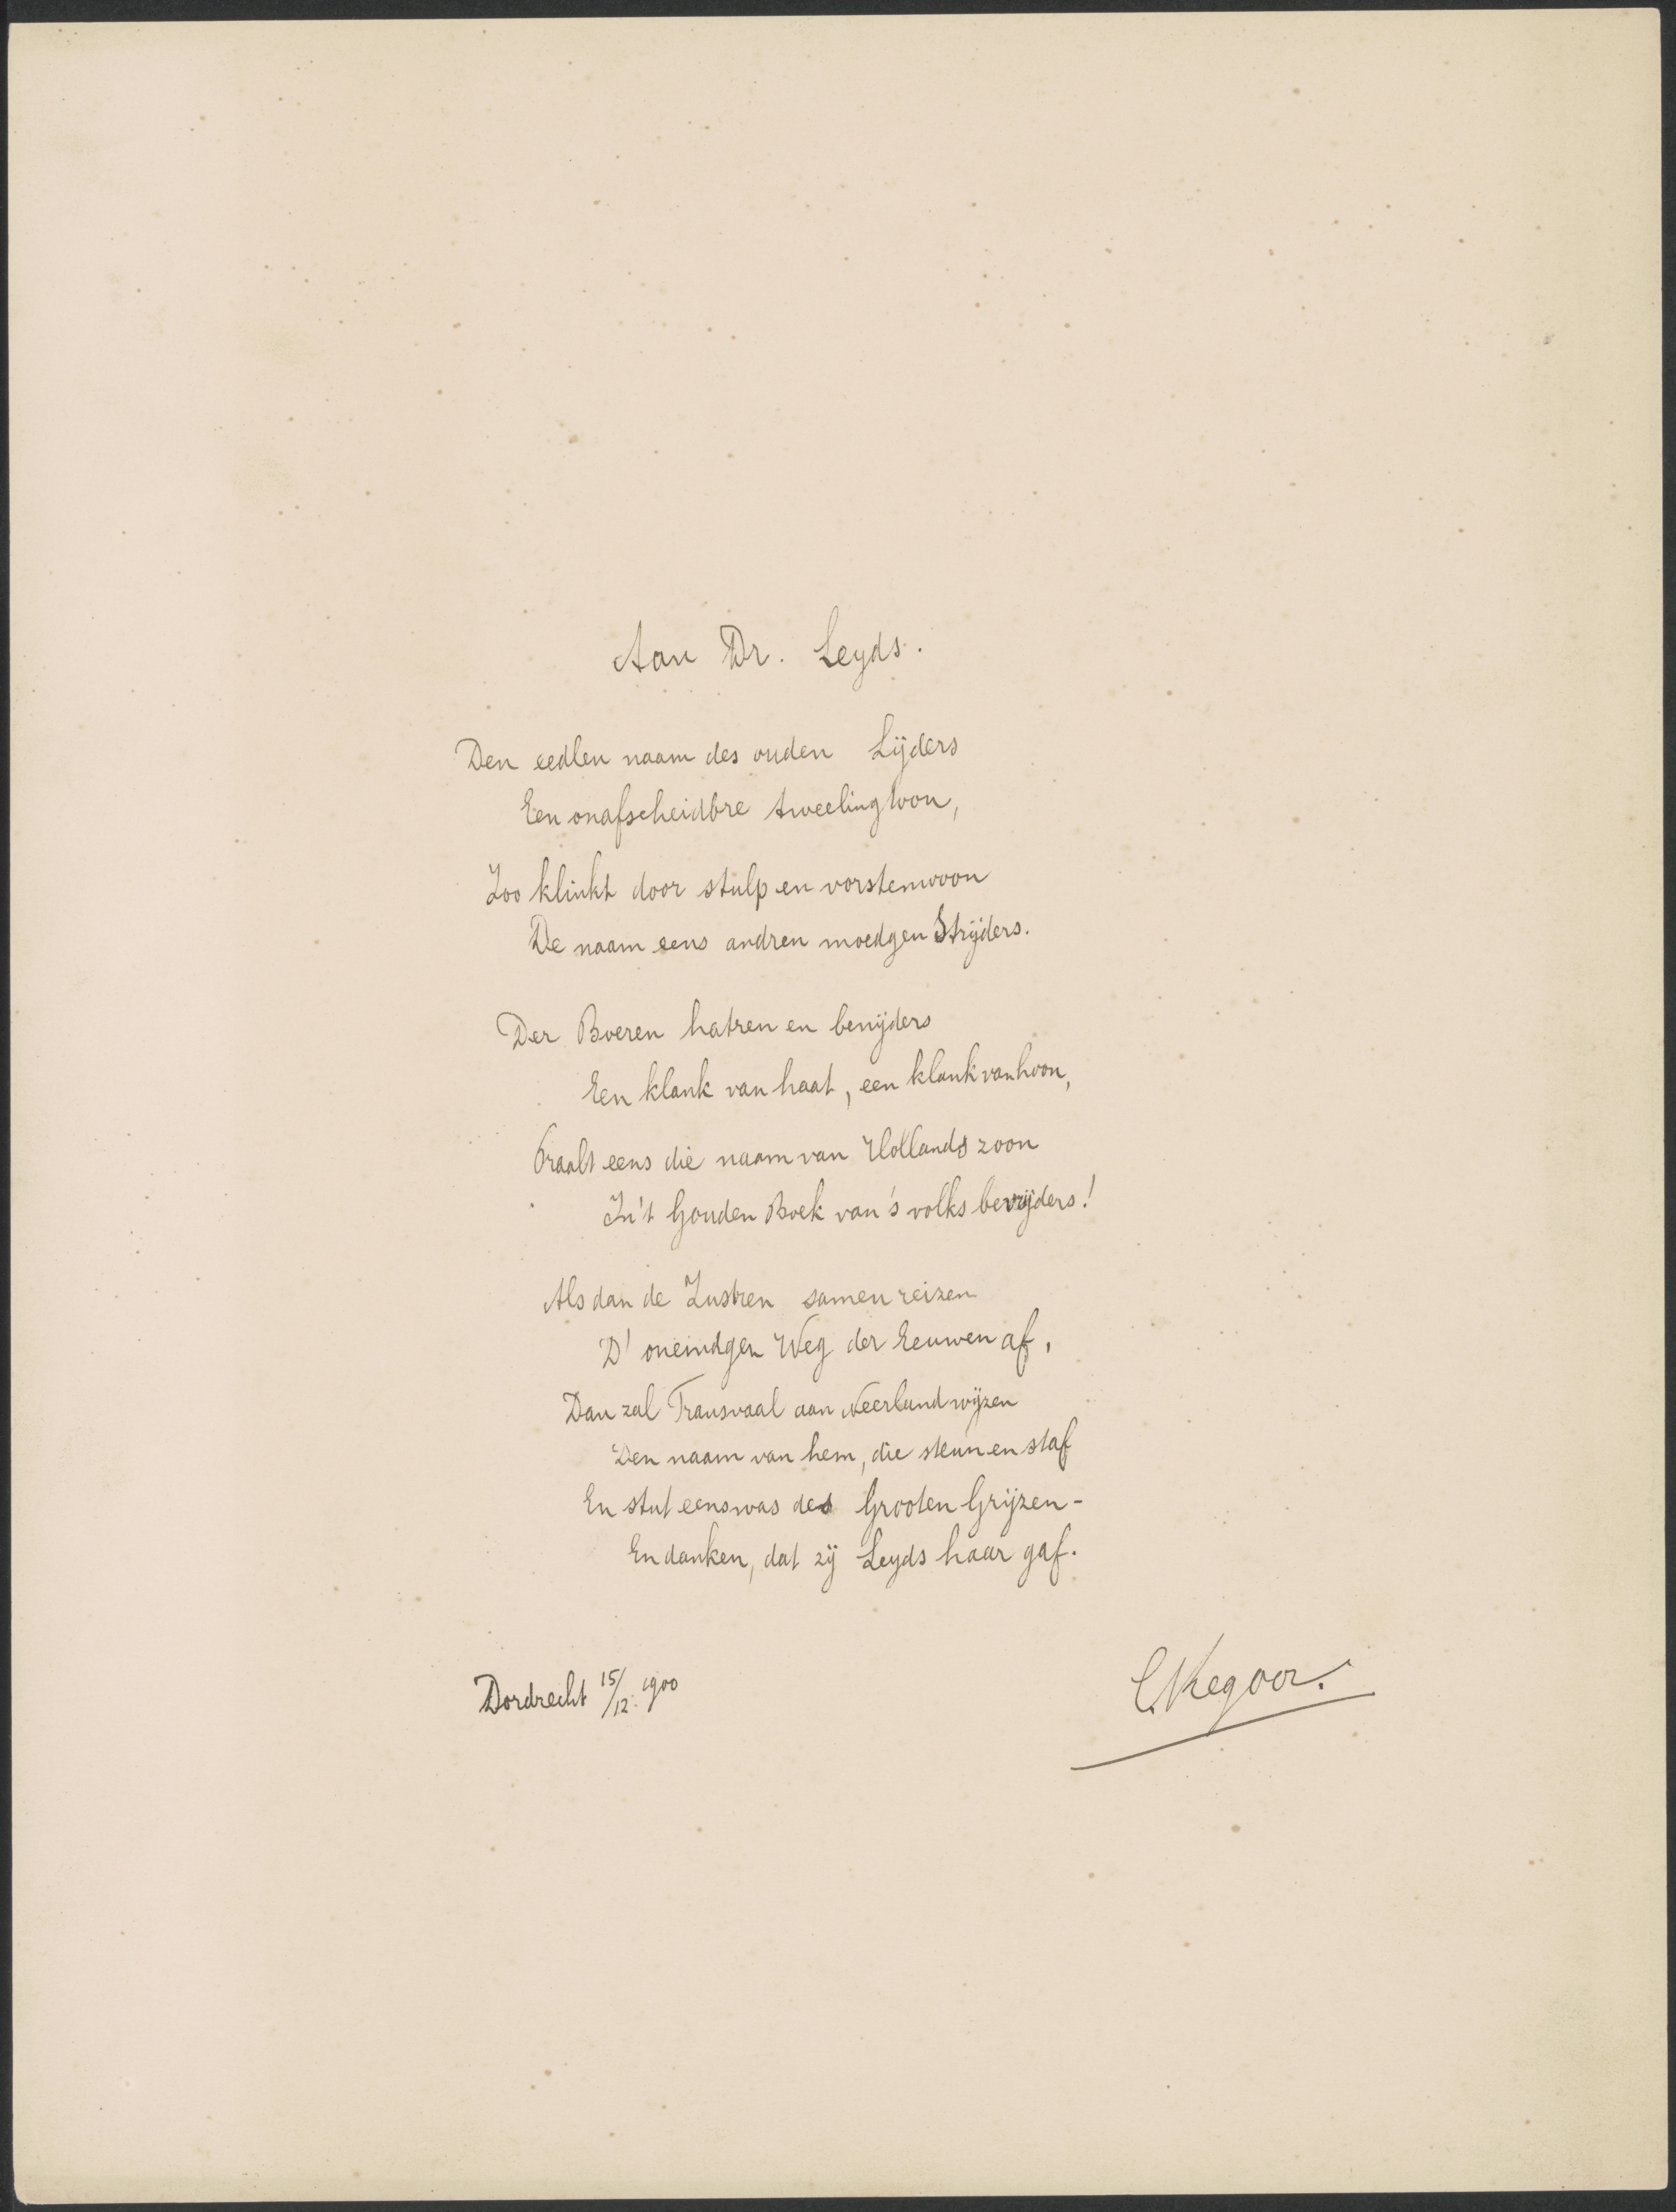 Aan Dr. Leyds.
Den eedlen naam des ouden Lijders
Een onafscheidbre tweelingtoon,
Zoo klinkt door stulp en vorstenwoon
De naam eens andren moedgen Strijders.
Der Boeren hatren en benijders
Een klank van haat, een klank van hoon,
Praalt eens die naam van Hollands zoon
In 't Gouden Boek van 's volks bevrijders!
Als dan de Lustren samen reizen
D' oneindgen Weg der Eeuwen af,
Dan zal Transvaal aan Neerland wijzen
Den naam van hem, die steun en staf
En stut eens was des Grooten Grijzen -
En danken, dat zij Leyds haar gaf.
Dordrecht 15/12. 1900
C. Kegoor.